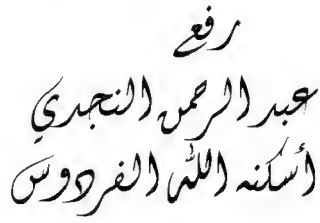 رفع
عبد الرحمن النجدي
أسكنه الله الفردوس